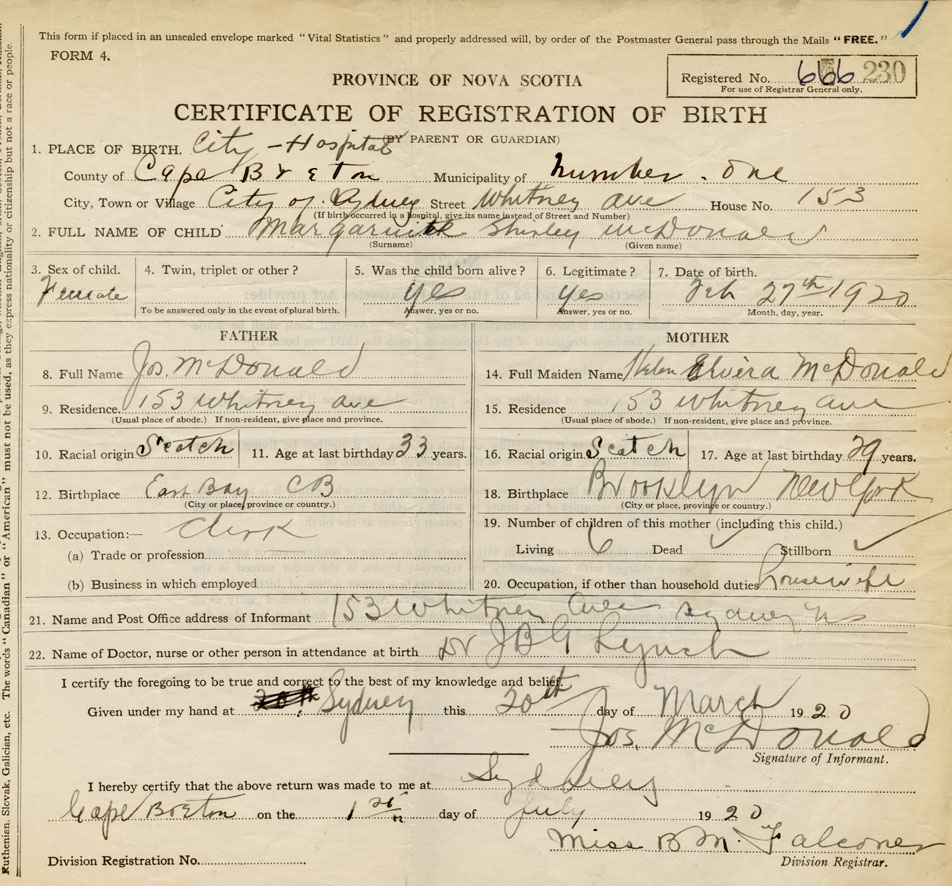 This form if placed in an unsealed envelope marked "Vital Statistics" and properly addressed will, by order of the Postmaster General pass through the Mails "FREE."
FORM 4.
PROVINCE OF NOVA SCOTIA
Registered No. 666 230
For use of Registrar General only.
CERTIFICATE OF REGISTRATION OF BIRTH
(BY PARENT OR GUARDIAN)
1. PLACE OF BIRTH. City - Hospital
County of Cape Breton Municipality of number. one
City, Town or Village City of Sydney Street Whitney ave House No. 153
(If birth occurred in a hospital, give its name instead of Street and Number)
2. FULL NAME OF CHILD Shirley McDonald
(Surname) (Given name)
3. Sex of child. 4. Twin, triplet or other? 5. Was the child born alive? 6. Legitimate? 7. Date of birth.
Female yes yes Feb 27th 1920
To be answered only in the event of plural birth. Answer, yes or no. Answer, yes or no. Month, day, year.
FATHER MOTHER
8. Full Name Jos. McDonald 14. Full Maiden Name Helen Elvira McDonald
9. Residence. 153 Whitney ave 15. Residence 153 Whitney ave
(Usual place of abode.) If non-resident, give place and province. (Usual place of abode.) If non-resident, give place and province.
10. Racial origin Scotch 11. Age at last birthday 33 years. 16. Racial origin Scotch 17. Age at last birthday 29 years.
12. Birthplace East Bay CB 18. Birthplace Brooklyn New York
(City or place, province or country.) (City or place, province or country.)
13. Occupation:— Clerk 19. Number of children of this mother (including this child.)
(a) Trade or profession Living 6 Dead Stillborn
(b) Business in which employed 20. Occupation, if other than household duties housewife
21. Name and Post Office address of Informant 153 Whitney Ave Sydney NS
22. Name of Doctor, nurse or other person in attendance at birth Dr JBG Lynch
I certify the foregoing to be true and correct to the best of my knowledge and belief.
Given under my hand at Sydney this 20th day of March 1920
Jos. McDonald
Signature of Informant.
I hereby certify that the above return was made to me at Sydney
Cape Breton on the 1 day of July 1920
Miss B M Falconer
Division Registration No. Division Registrar.
Ruthenian, Slovak, Galician, etc. The words "Canadian" or "American" must not be used, as they express nationality or citizenship but not a race or people.